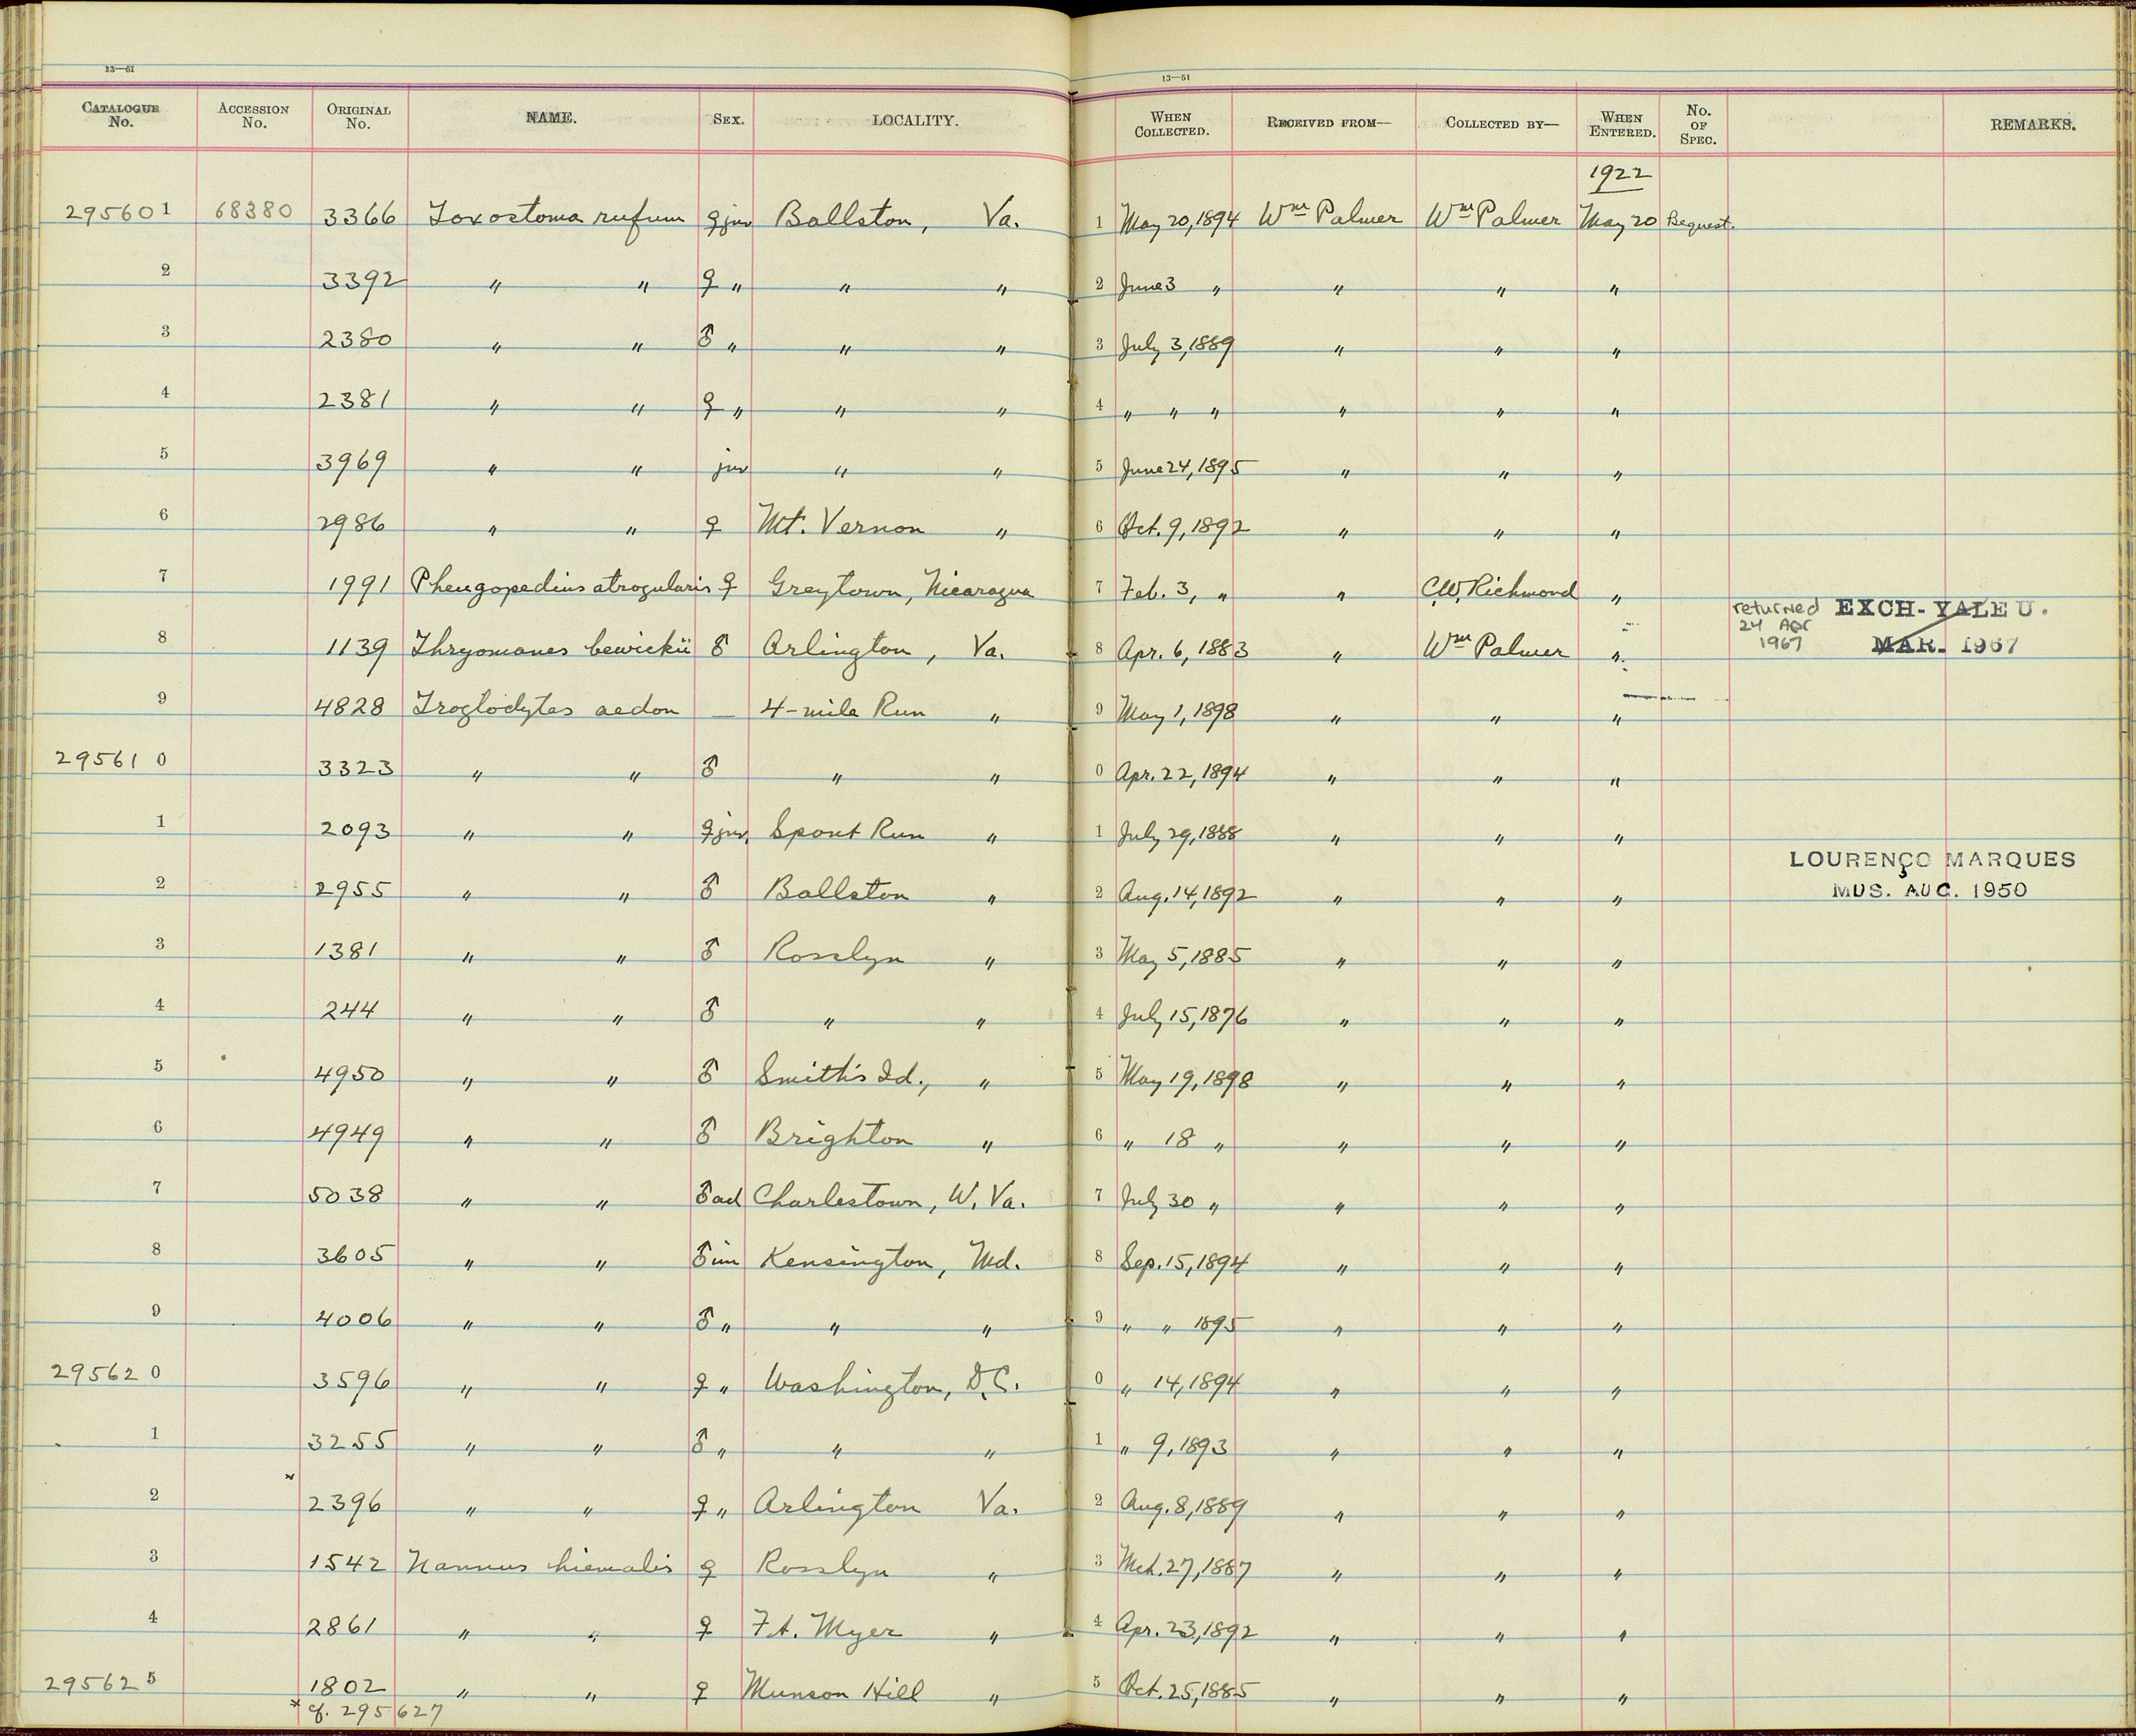 13—51 13—51
CATALOGUE No. ACCESSION No. ORIGINAL No. NAME. SEX. LOCALITY. WHEN COLLECTED. RECEIVED FROM— COLLECTED BY— WHEN ENTERED. No. OF SPEC. REMARKS.
1922
295601 68380 3366 Toxostoma rufum ♀ juv Ballston, Va. 1 May 20, 1894 Wm Palmer Wm Palmer May 20 Bequest.
2 3392 " " ♀ " " " 2 June 3 " " " "
3 2380 " " ♂ " " " 3 July 3, 1889 " " "
4 2381 " " ♀ " " " 4 " " " " " "
5 3969 " " juv " " 5 June 24, 1895 " " "
6 2986 " " ♀ Mt. Vernon " 6 Oct. 9, 1892 " " "
7 1991 Pheugopedius atrogularis ♀ Greytown, Nicaragua 7 Feb. 3, " " C.W. Richmond " returned 24 Apr 1967 EXCH - YALE U. MAR. 1967
8 1139 Thryomanes bewickii ♂ Arlington, Va. 8 Apr. 6, 1883 " Wm Palmer "
9 4828 Troglodytes aedon — 4-mile Run " 9 May 1, 1898 " " "
295610 3323 " " ♂ " " 0 Apr. 22, 1894 " " "
1 2093 " " ♀ juv. Spout Run " 1 July 29, 1888 " " "
2 2955 " " ♂ Ballston " 2 Aug. 14, 1892 " " " LOURENÇO MARQUES MUS. AUG. 1950
3 1381 " " ♂ Rosslyn " 3 May 5, 1885 " " "
4 244 " " ♂ " " 4 July 15, 1876 " " "
5 4950 " " ♂ Smith's Id., " 5 May 19, 1898 " " "
6 4949 " " ♂ Brighton " 6 " 18 " " " "
7 5038 " " ♂ ad Charlestown, W. Va. 7 July 30 " " " "
8 3605 " " ♂ im Kensington, Md. 8 Sep. 15, 1894 " " "
9 4006 " " ♂ " " " 9 " " 1895 " " "
295620 3596 " " ♀ " Washington, D.C. 0 " 14, 1894 " " "
1 3255 " " ♂ " " " 1 " 9, 1893 " " "
2 * 2396 " " ♀ " Arlington Va. 2 Aug. 8, 1889 " " "
3 1542 Nannus hiemalis ♀ Rosslyn " 3 Mch. 27, 1887 " " "
4 2861 " " ♀ Ft. Myer " 4 Apr. 23, 1892 " " "
295625 1802 " " ♀ Munson Hill " 5 Oct. 25, 1885 " " "
* cf. 295627